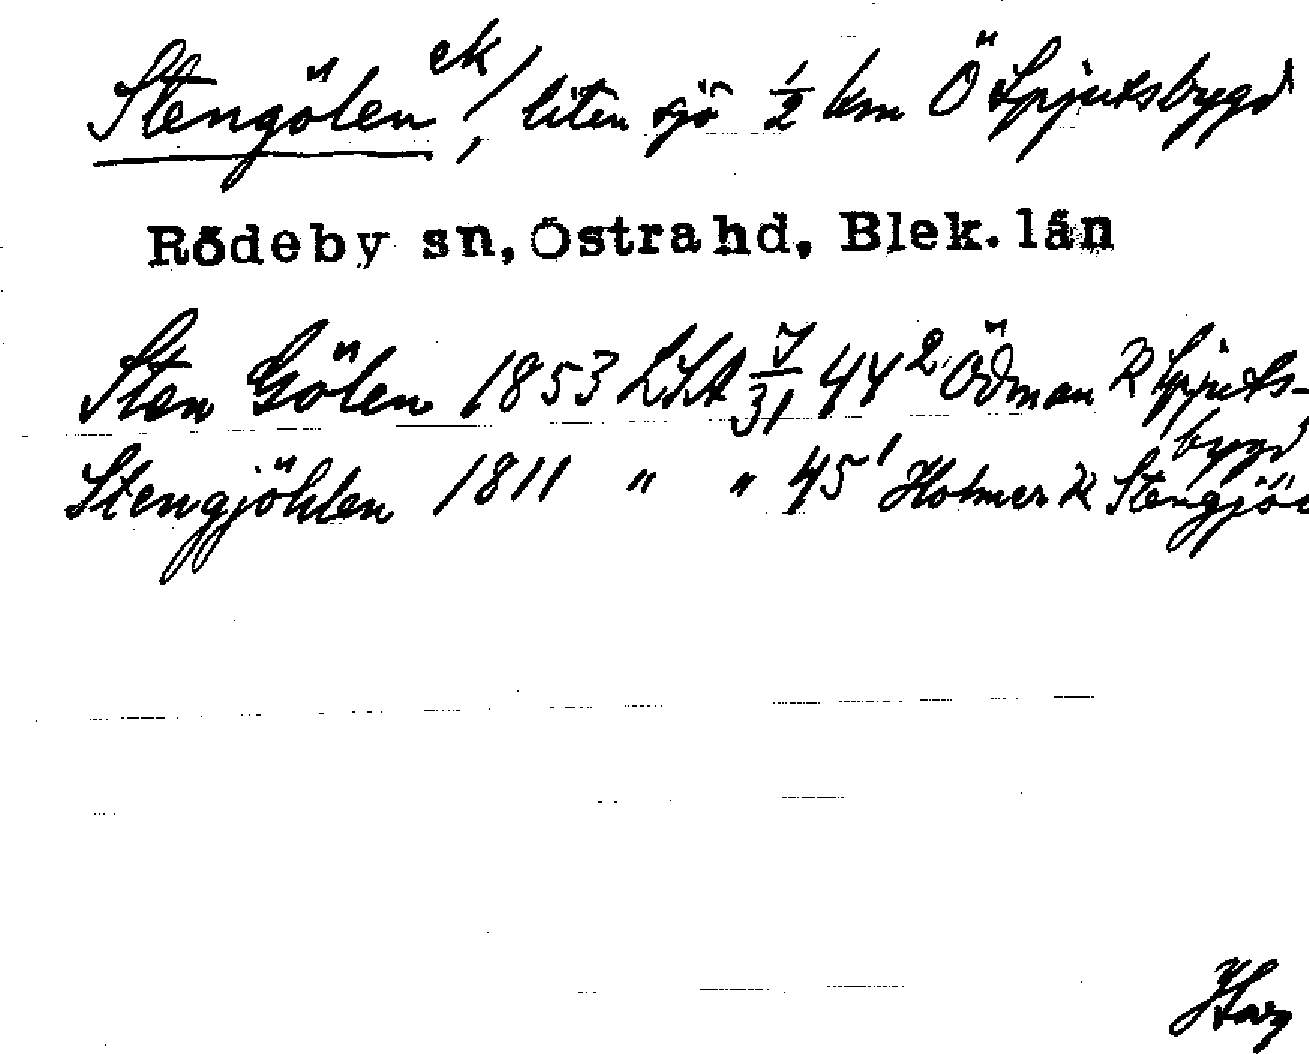 Stengölen ek/, liten sjö 1/2 km Ö Spjutsbygd
Rödeby sn, Östra hd, Blek. län
Sten Gölen 1853 LSA J/31 44² Ödman K Spjuts-
bygd
Stengjöhlen 1811 " " 45¹ Holmer K Stengjö